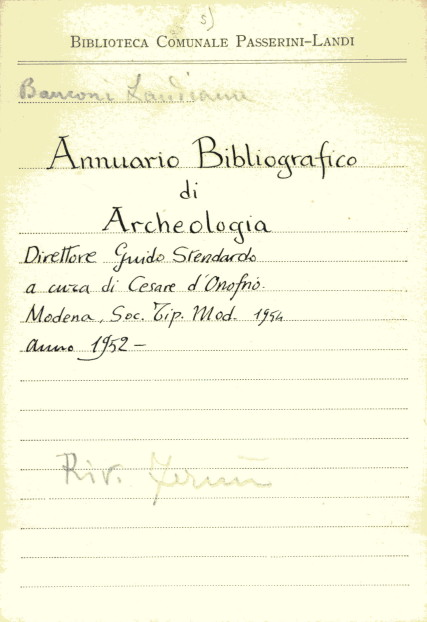 s)
BIBLIOTECA COMUNALE PASSERINI-LANDI
Banconi Landiana
Annuario Bibliografico
di
Archeologia
Direttore Guido Stendardo
a cura di Cesare d'Onofrio.
Modena, Soc. Tip. Mod. 1954
anno 1952 —
Riv.